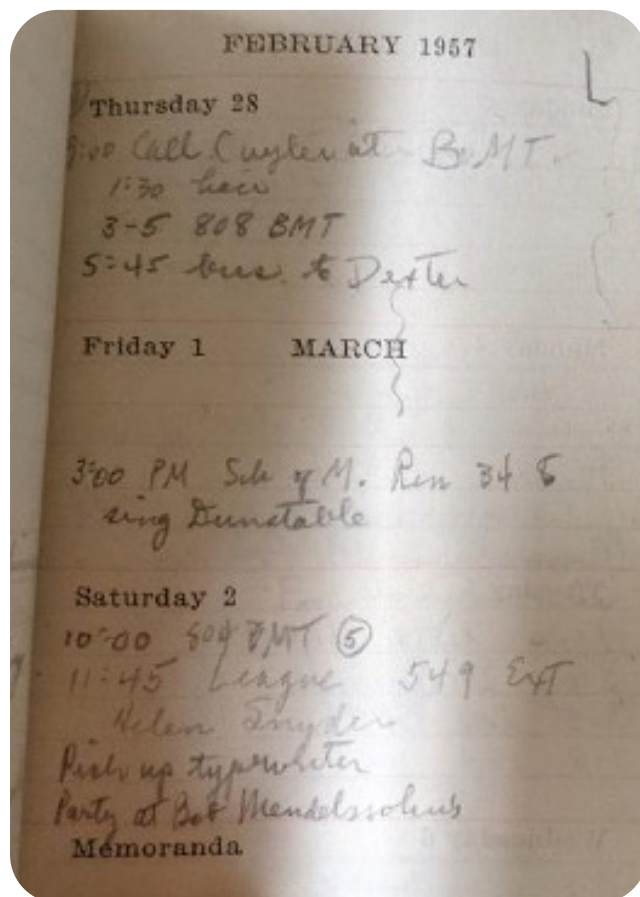 FEBRUARY 1957
L
Thursday 28
:00 Call Cuyler at BMT
1:30 hair
3-5 808 BMT
5:45 bus to Dexter
Friday 1 MARCH
3:00 PM Sch of M. Rm 34
sing Dunstable
Saturday 2
10:00 804 BMT 5
11:45 League 549 Ext
Helen Snyder
Pick up typewriter
Party at Bob Mendelssohns
Memoranda